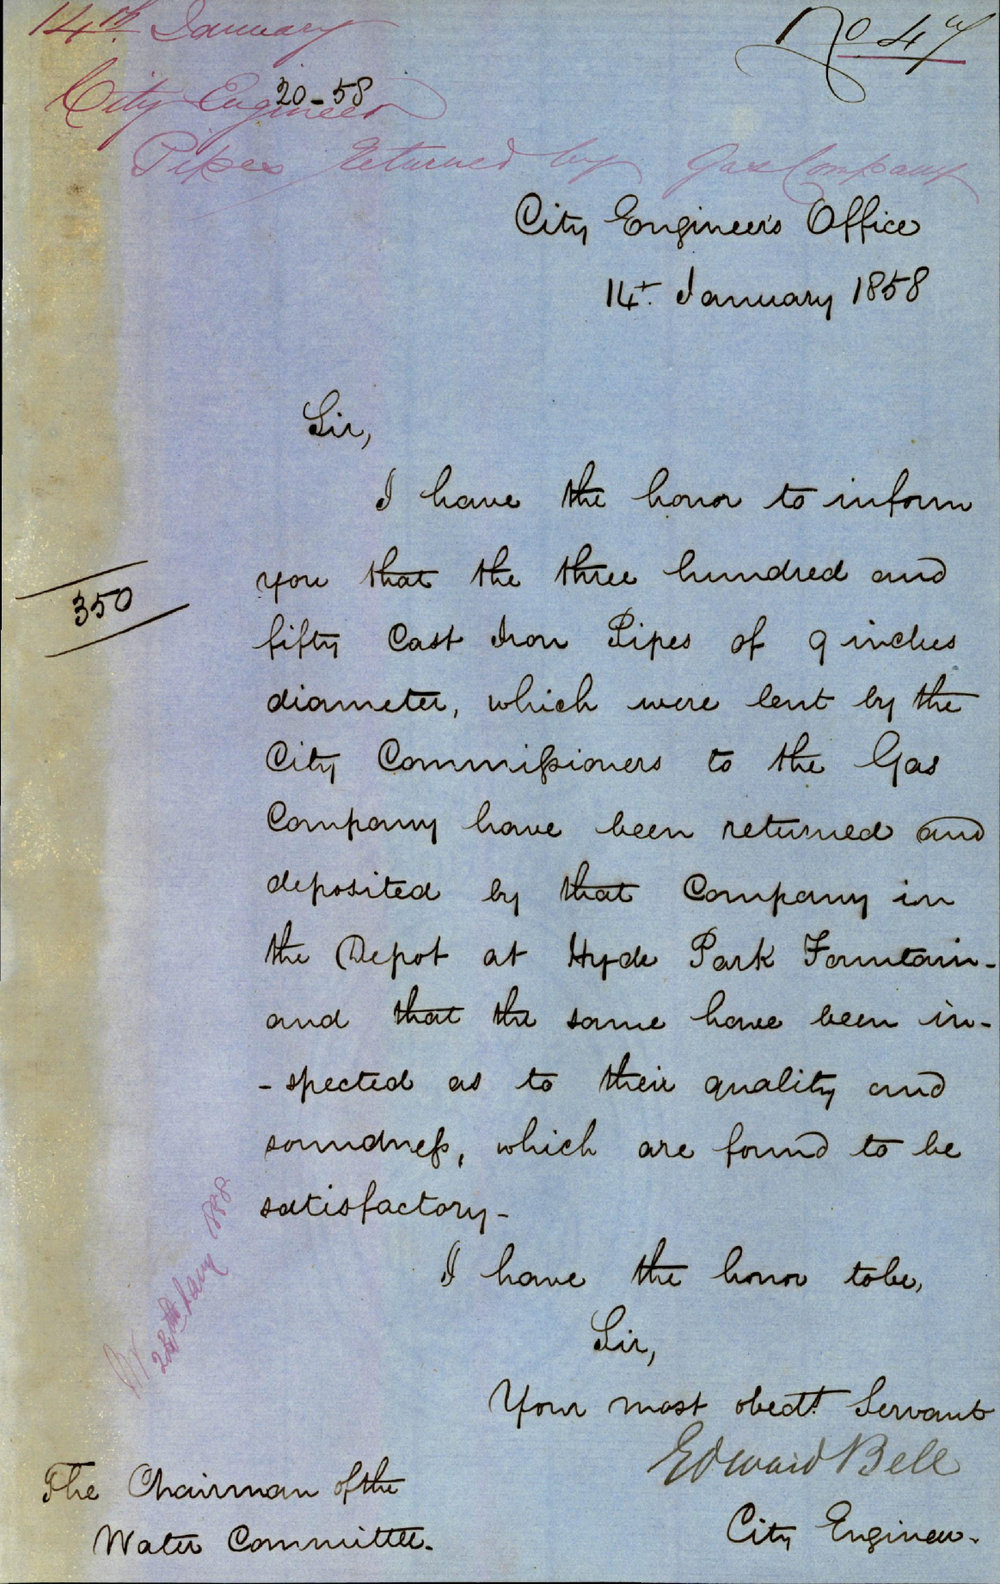 14th January
No 47
City Engineer
20-58
Pipes returned by Gas Company
City Engineer's Office
14t. January 1858
Sir,
I have the honor to inform
you that the three hundred and
350
fifty Cast Iron Pipes of 9 inches
diameter, which were lent by the
City Commissioners to the Gas
Company have been returned and
deposited by that Company in
the Depot at Hyde Park Fountain-
and that the same have been in-
-spected as to their quality and
soundness, which are found to be
satisfactory-
I have the honor to be,
Sir,
Your most obedt. Servant
Edward Bell
City Engineer.
The Chairman of the
Water Committee.
28th Jany